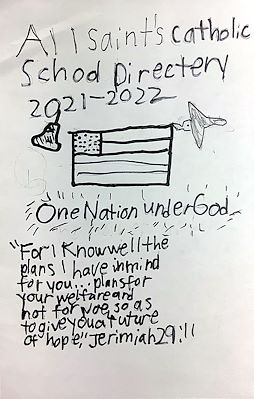 All saint's Catholic
School Directery
2021-2022
One Nation under God
"For I Know well the
plans I have in mind
for you... plans for
your welfare and
not for woe, so as
to give you a future
of hope," Jerimiah 29:11